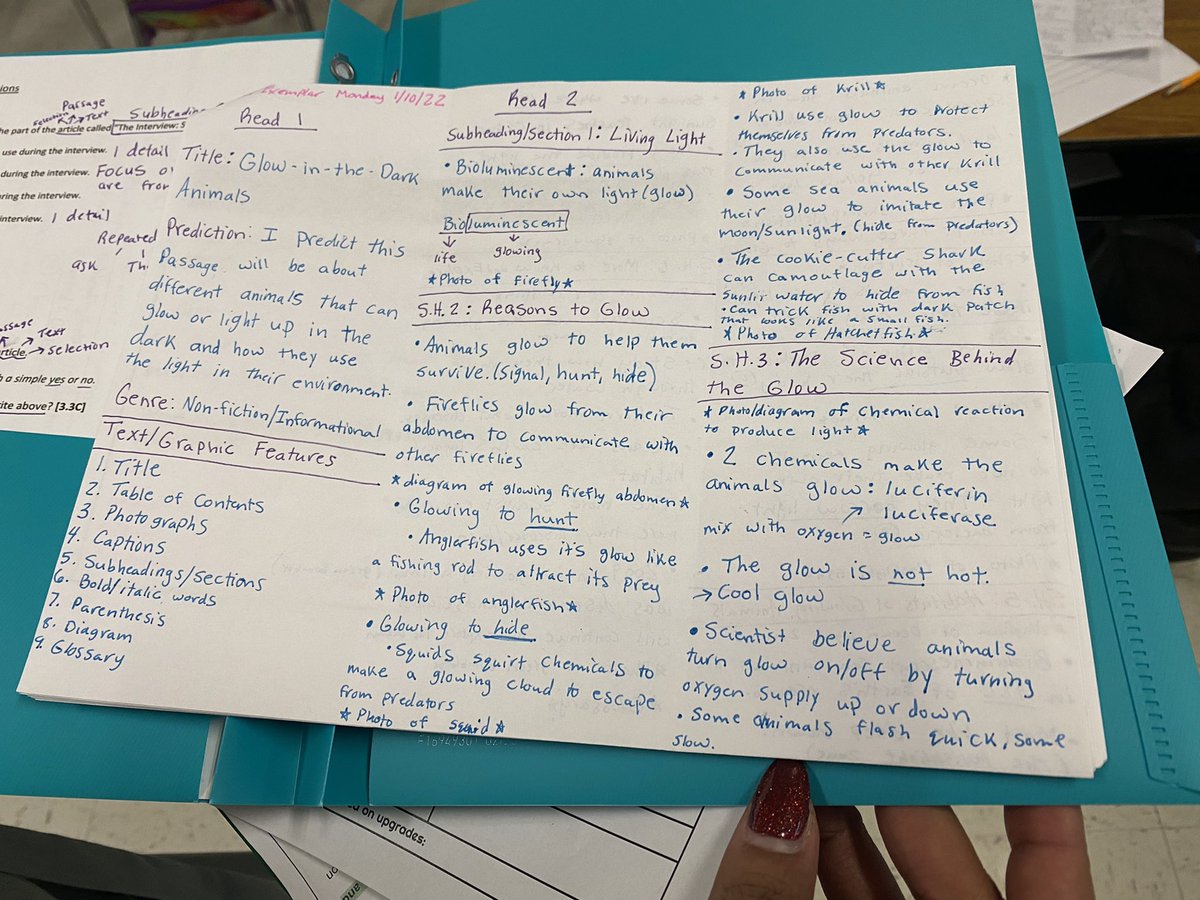 Exemplar Monday 1/10/22
Read 1
Title: Glow-in-the-Dark
Animals
Prediction: I predict this
Passage will be about
different animals that can
glow or light up in the
dark and how they use
the light in their environment.
Genre: Non-fiction/Informational
Text/Graphic Features
1. Title
2. Table of Contents
3. Photographs
4. Captions
5. Subheadings/Sections
6. Bold/italic words
7. Parenthesis
8. Diagram
9. Glossary
Read 2
Subheading/Section 1: Living Light
• Bioluminescent: animals
make their own light (glow)
Bioluminescent
life glowing
*Photo of firefly*
S.H.2: Reasons to Glow
• Animals glow to help them
survive. (Signal, hunt, hide)
• Fireflies glow from their
abdomen to communicate with
other fireflies
*diagram of glowing firefly abdomen*
• Glowing to hunt
• Anglerfish uses it's glow like
a fishing rod to attract its prey
*Photo of anglerfish*
• Glowing to hide
• Squids squirt chemicals to
make a glowing cloud to escape
from predators
*Photo of squid*
*Photo of Krill*
• Krill use glow to protect
themselves from predators.
• They also use the glow to
communicate with other Krill
• Some sea animals use
their glow to imitate the
moon/sunlight. (hide from predators)
• The cookie-cutter shark
can camouflage with the
sunlit water to hide from fish
• Can trick fish with dark patch
that looks like a small fish.
*Photo of Hatchetfish*
S.H.3: The Science Behind
the Glow
*Photo/diagram of chemical reaction
to produce light*
• 2 chemicals make the
animals glow: luciferin
luciferase
mix with oxygen = glow
• The glow is not hot.
→ Cool glow
• Scientist believe animals
turn glow on/off by turning
oxygen supply up or down
• Some animals flash quick, some
slow.
Passage
Selection Text
Subheading
the part of the article called "The Interview: S
use during the interview. 1 detail
during the interview. Focus
are from
ring the interview.
interview. 1 detail
Repeated
ask
Text
article. → Selection
a simple yes or no.
ite above? [3.3C]
on upgrades: